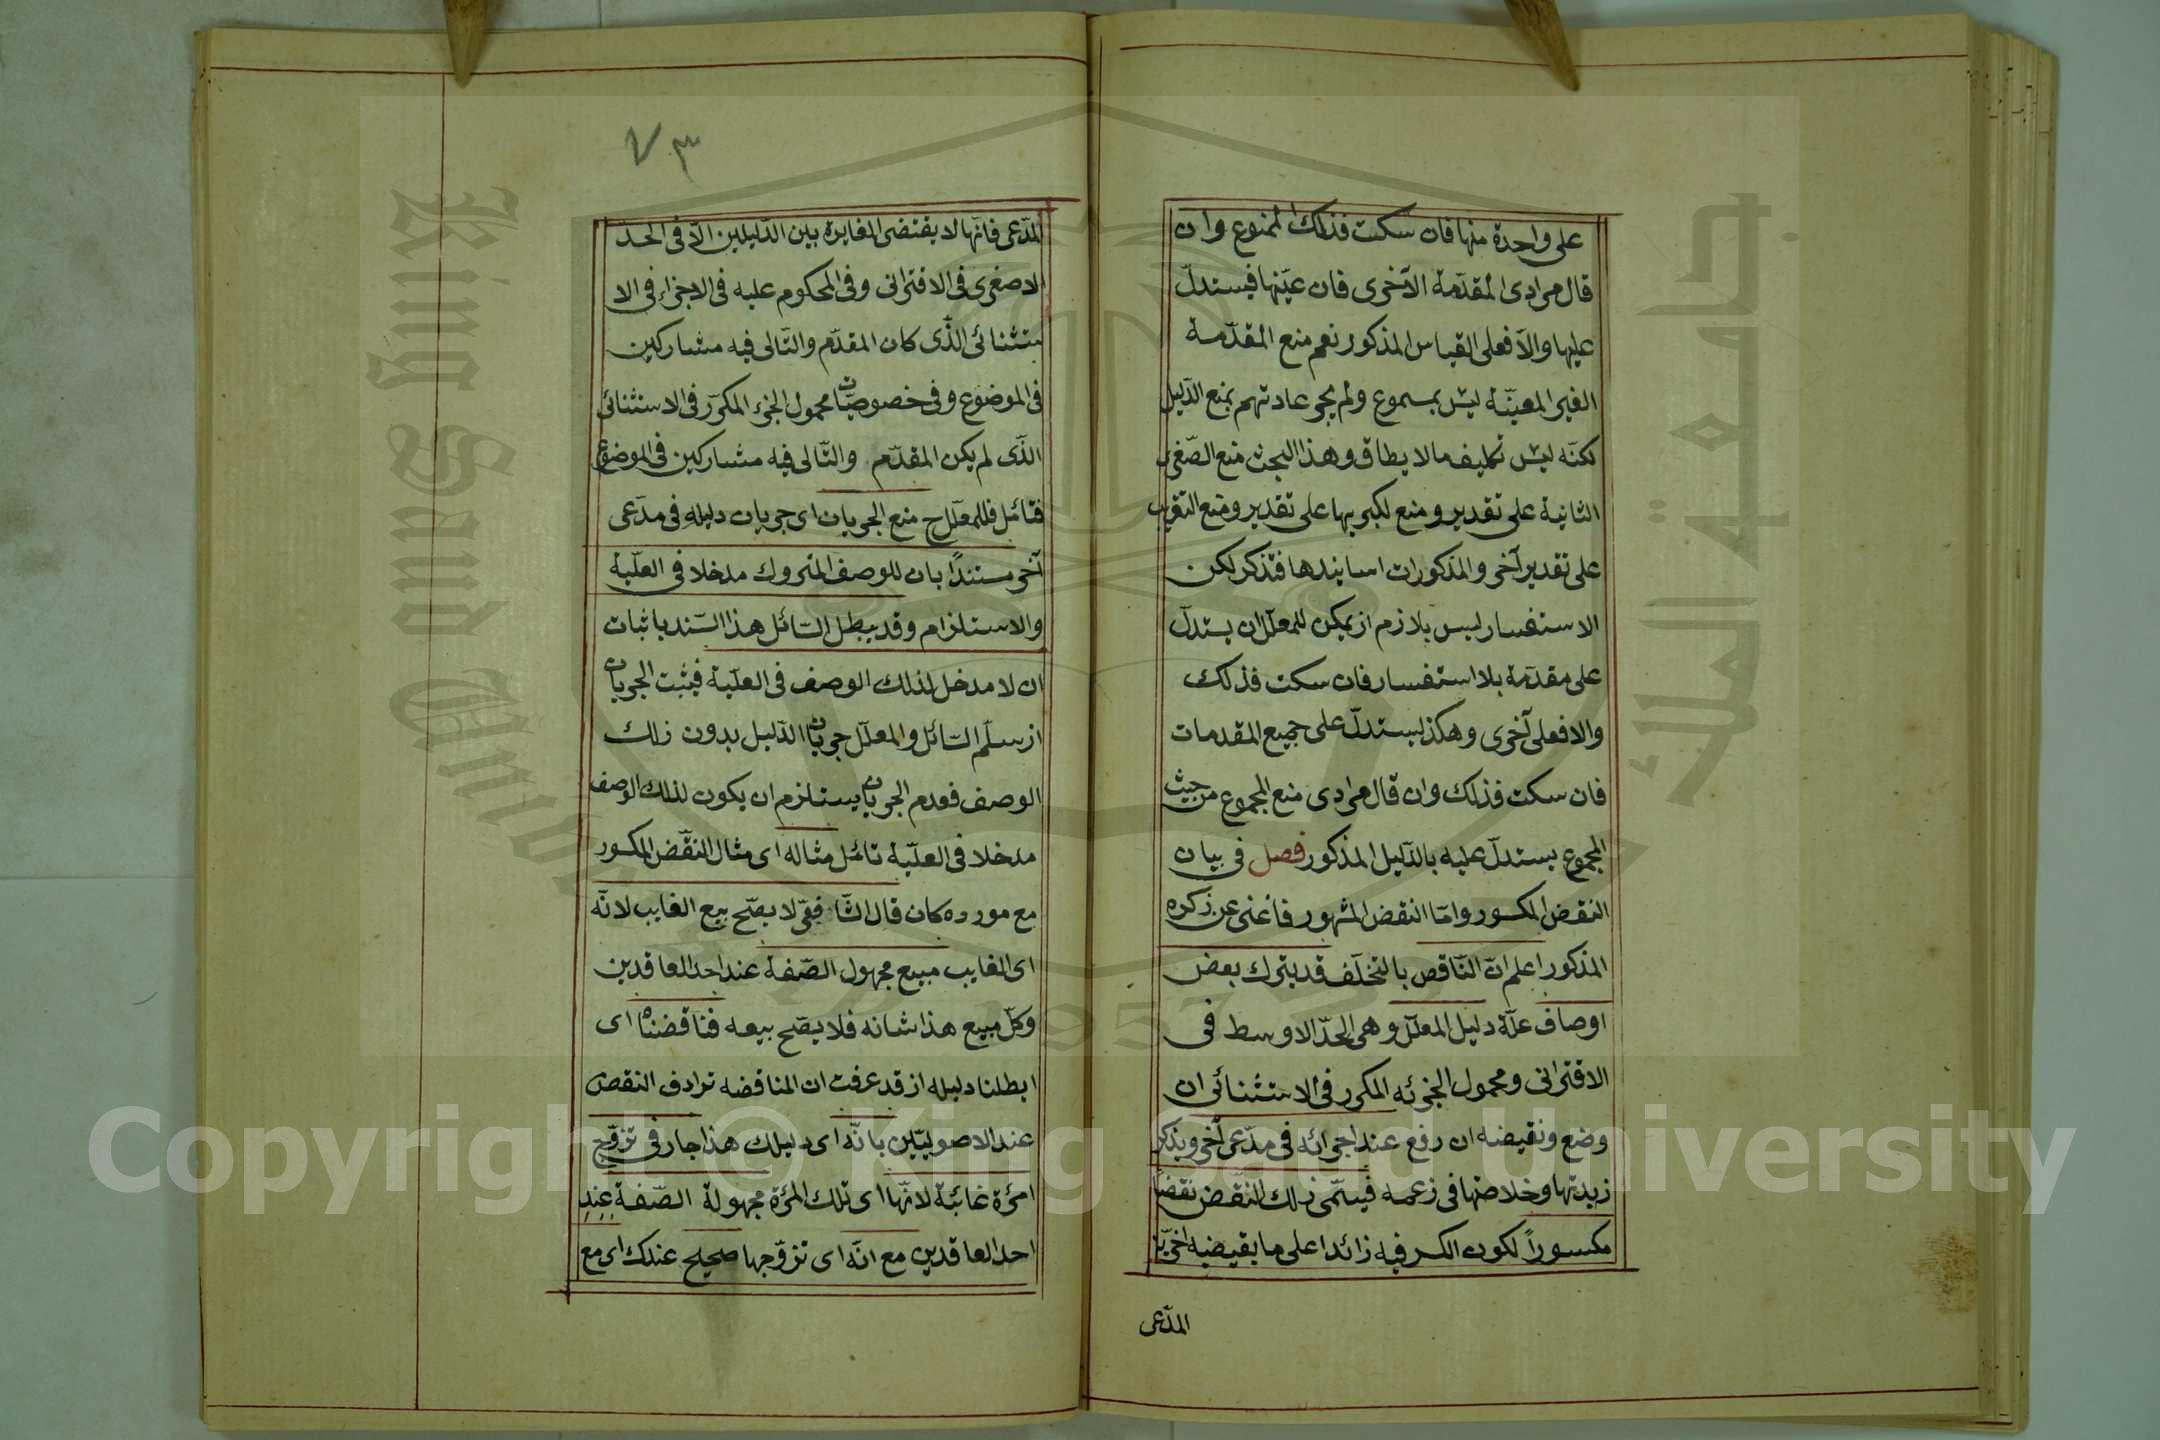 على واحدة منها فان سكت فذلك الممنوع وان
قال مرادى المقدّمة الآخرى فان عيّنها فيستدلّ
عليها والّا فعلى القياس المذكور نعم منع المقدّمة
الغير المعيّنة ليس بمسموع ولم يجر عادتهم بمنع الدّليل
لكنّه ليس تكليف مالا يطاق وهذا البحث منع الصّغرى
الثانية على تقدير ومنع لكبريها على تقدير ومنع التقريب
على تقدير آخر والمذكورات اسانيدها فتذكر لكن
الاستفسار ليس بلازم از يمكن للمعلّل ان يستدلّ
على مقدّمة بلا استفسار فان سكت فذلك
والا فعلى آخرى وهكذ ليستدلّ على جميع المقدمات
فان سكت فذلك وان قال مرادى منع المجموع من حيث
المجموع يستدلّ عليه بالدّليل المذكور فصل فى بيان
النقض المكسور وامّا النقض المشهور فاغنى عن زكره
المذكور اعلم انّ النّاقص بالتخلّف قد يترك بعض
اوصاف علّة دليل المعلّل وهى الحدّ الاوسط فى
الاقترانى ومحمول الجزئه المكرر فى الاستثنائى ان
وضع ونقيضه ان رفع عند اجرائه فى مدّعى آخر ويذكر
زبدتها وخلاصتها فى زعمه فيسمّى زلك النّقض نقضاً
مكسوراً لكون الكسر فيه زائدا على ما يقيضيه
المدّعى
٧٣
المدّعى فانّها لا يقتضى المغايرة بين الدّليلين الّا فى الحد
الاصغرى فى الاقترانى وفى المحكوم عليه فى الاجزاء فى الا
ستثنائى الذّى كان المقدّم والتّالى فيه مشاركين
فى الموضوع وفى خصوصيّات محمول الجزء المكرّر فى الاستثنائى
الذّى لم يكن المقدّم والتّالى فيه مشاركين فى الموضوع
فتائمل فللمعلّل ح منع الجريان اى جريان دليله فى مدّعى
آخر مستنداً بان للوصف المتروك مدخلا فى العلّية
والاستلزام وقد يبطل السّائل هذا السّند باثبات
ان لا مدخل لذلك الوصف فى العلّية فيثبت الجريان
از سلّم السّائل والمعلّل جريان الدّليل بدون زلك
الوصف فعدم الجريان يستلزم ان يكون لذلك الوصف
مدخلا فى العلّية تائمل مثاله اى مثال النقّض المكسور
مع مورده كان قال الشّافعىّ لا يصّح بيع الغايب لانّه
اى الغايب مبيع مجهول الصّفة عند احد العاقدين
وكلّ مبيع هذا شانه فلا يصّح بيعه فناقضناه اى
ابطلنا دليله از قد عرفت ان المناقضه ترادف النقض
عند الاصوليّين بانّه اى دليلك هذا جار فى تزوّج
امرٔة غائبة لانّها اى تلك المرٔة مجهولة الصّفة عند
احد العاقدين مع انّه اى تزوّجها صحيح عندك اى مع
Copyright © King Saud University
King Saud University
جامعة الملك سعود
1957